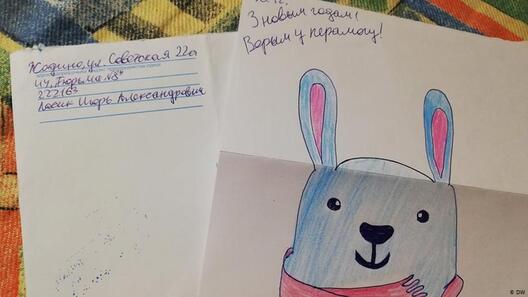 Жодино, ул. Советская 22а
ИУ „Тюрьма №8"
222163
Лосик Игорь Александрович
З новым годам!
Верым у перамогу!
© DW